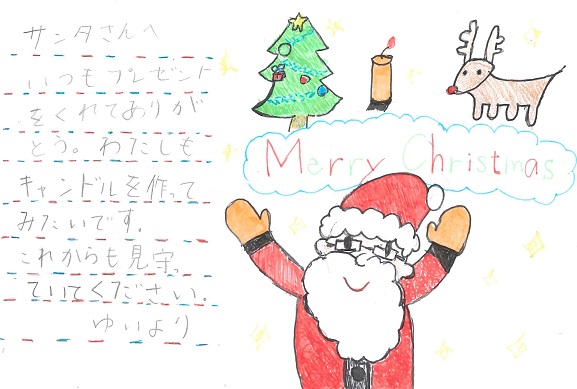 サンタさんへ
いつもプレゼント
をくれてありが
とう。わたしも
キャンドルを作って
みたいです。
これからも見守っ
ていてください。
ゆいより
Merry Christmas